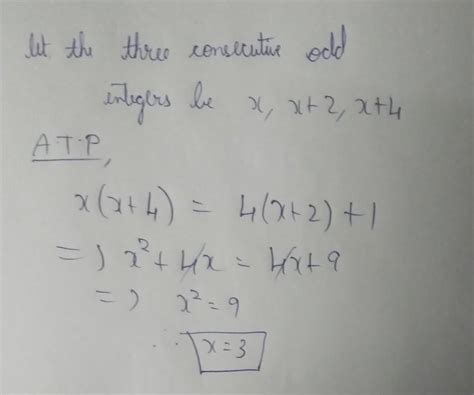 let the three consecutive odd
integers be x, x+2, x+4
A.T.P,
x(x+4) = 4(x+2)+1
=) x²+4x = 4x+9
=) x²=9
∴ x=3